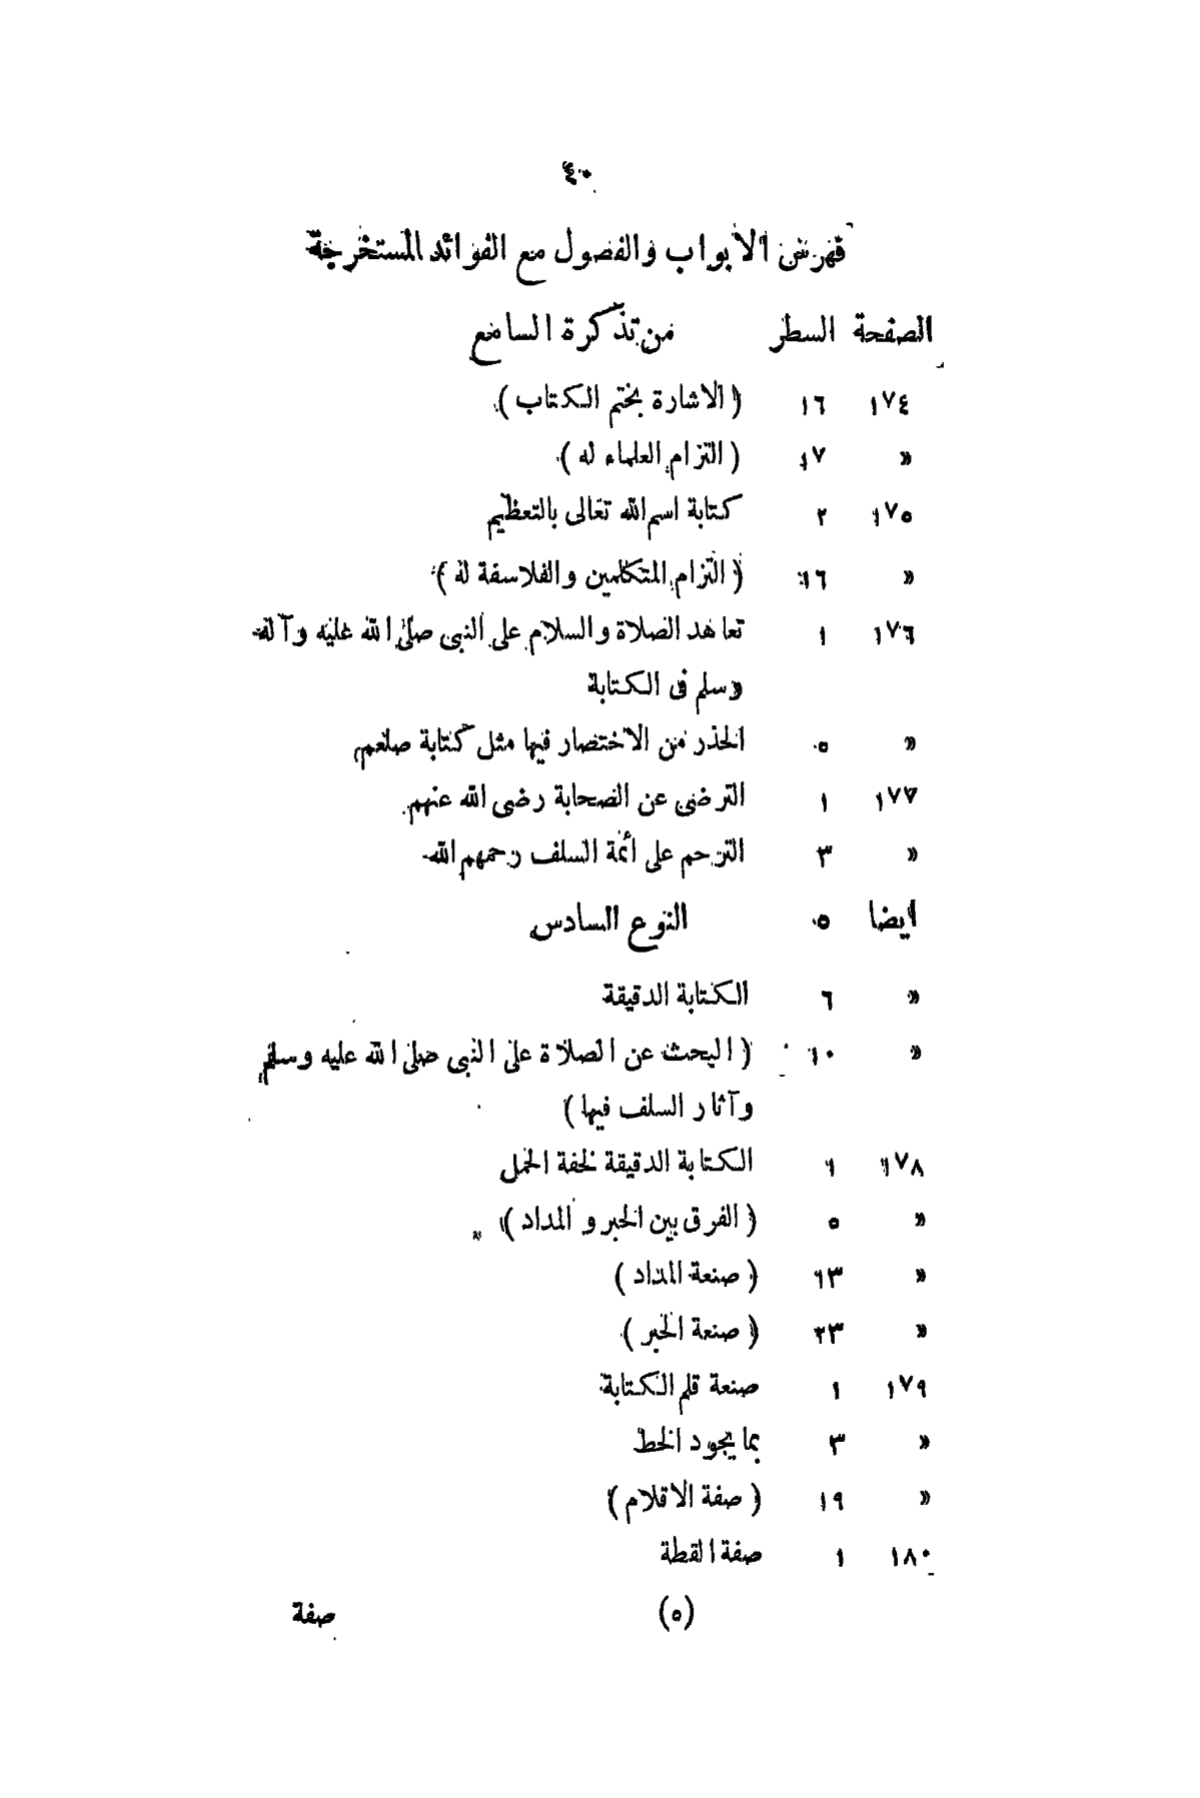 ٤٠
فهرس الابواب والفصول مع الفوائد المستخرجة
الصفحة السطر من تذكرة السامع
١٧٤ ١٦ ( الاشارة بختم الكتاب )
« ١٧ ( التزام العلماء له )
١٧٥ ٢ كتابة اسم الله تعالى بالتعظيم
« ١٦ ( التزام المتكلمين والفلاسفة له )
١٧٦ ١ تعاهد الصلاة والسلام على النبى صلى الله عليه وآله
وسلم فى الكتابة
« ٥ الحذر من الاختصار فيها مثل كتابة صلعم
١٧٧ ١ الترضى عن الصحابة رضى الله عنهم
« ٣ الترحم على أئمة السلف رحمهم الله
ايضا ٥ النوع السادس
« ٦ الكتابة الدقيقة
« ١٠ ( البحث عن الصلاة على النبى صلى الله عليه وسلم
وآثار السلف فيها )
١٧٨ ١ الكتابة الدقيقة لخفة الحمل
« ٥ ( الفرق بين الحبر و المداد )
« ١٣ ( صنعة المداد )
« ٢٣ ( صنعة الحبر )
١٧٩ ١ صنعة قلم الكتابة
« ٣ بما يجود الخط
« ١٩ ( صفة الاقلام )
١٨٠ ١ صفة القطة
(٥) صفة